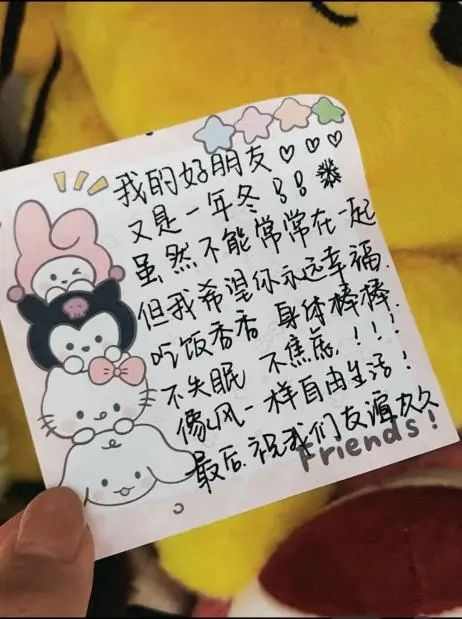 我的好朋友♡♡♡
又是一年冬!!❄
虽然不能常常在一起
但我希望你永远幸福.
吃饭香香 身体棒棒.
不失眠 不焦虑!!!
像风一样自由生活!
最后.祝我们友谊久久
Friends!